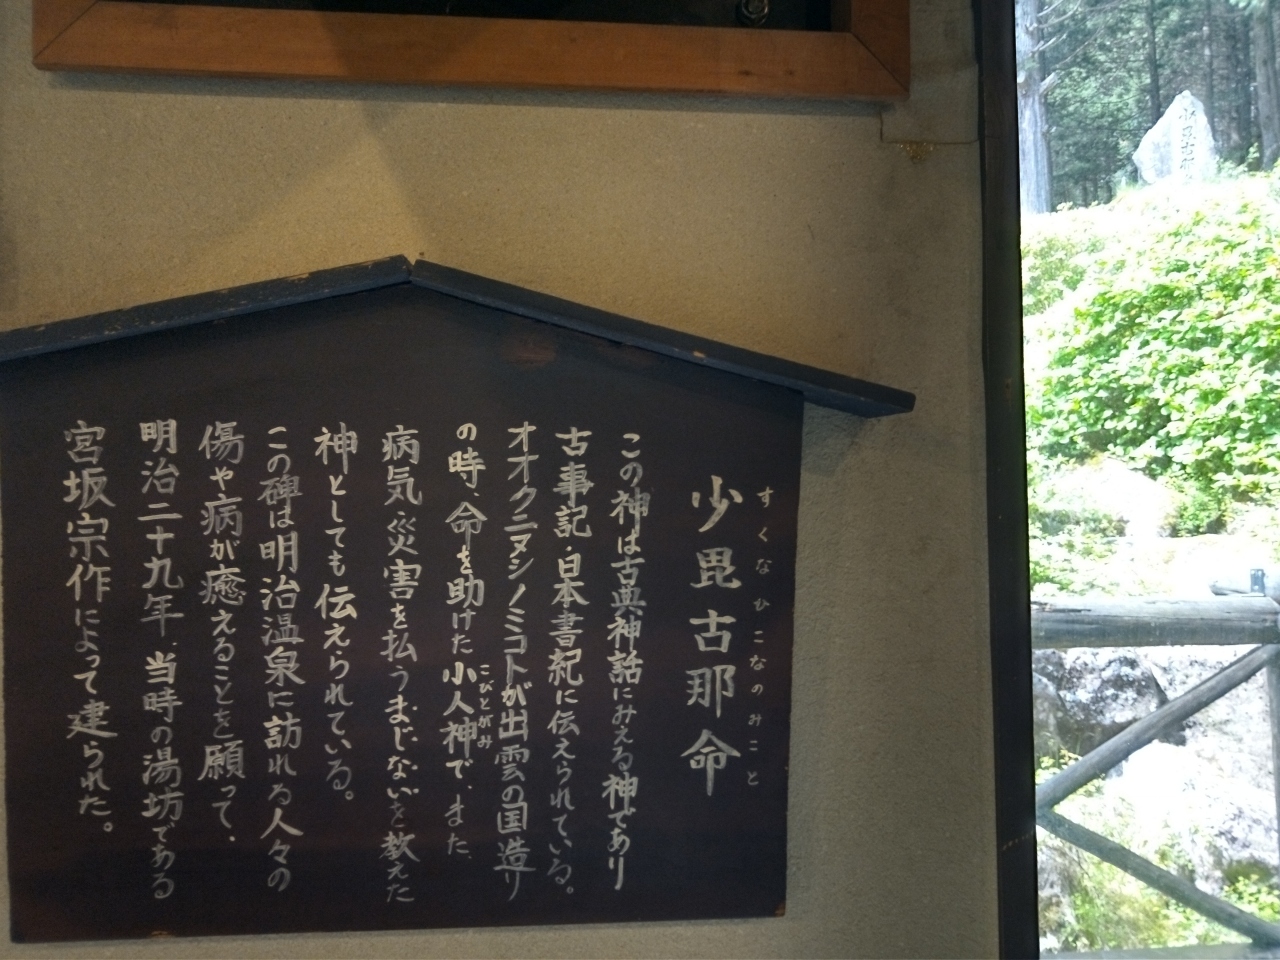 少毘古那命
すくなひこなのみこと
この神は古典神話にみえる神であり
古事記・日本書紀に伝えられている。
オオクニヌシノミコトが出雲の国造り
の時、命を助けた小人神で、また、
こびとがみ
病気、災害を払うまじないを教えた
神としても伝えられている。
この碑は明治温泉に訪れる人々の
傷や病が癒えることを願って、
明治二十九年、当時の湯坊である
宮坂宗作によって建られた。